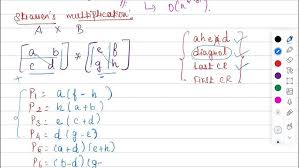 Strassen's multiplication
A × B
[a b
c d] * [e f
g h]
ahepid
diagnol
Last CR
First CR
P1 = a(f-h)
P2 = h(a+b)
P3 = e(c+d)
P4 = d(g-e)
P5 = (a+d)(e+h)
P6 = (b-d)(g-